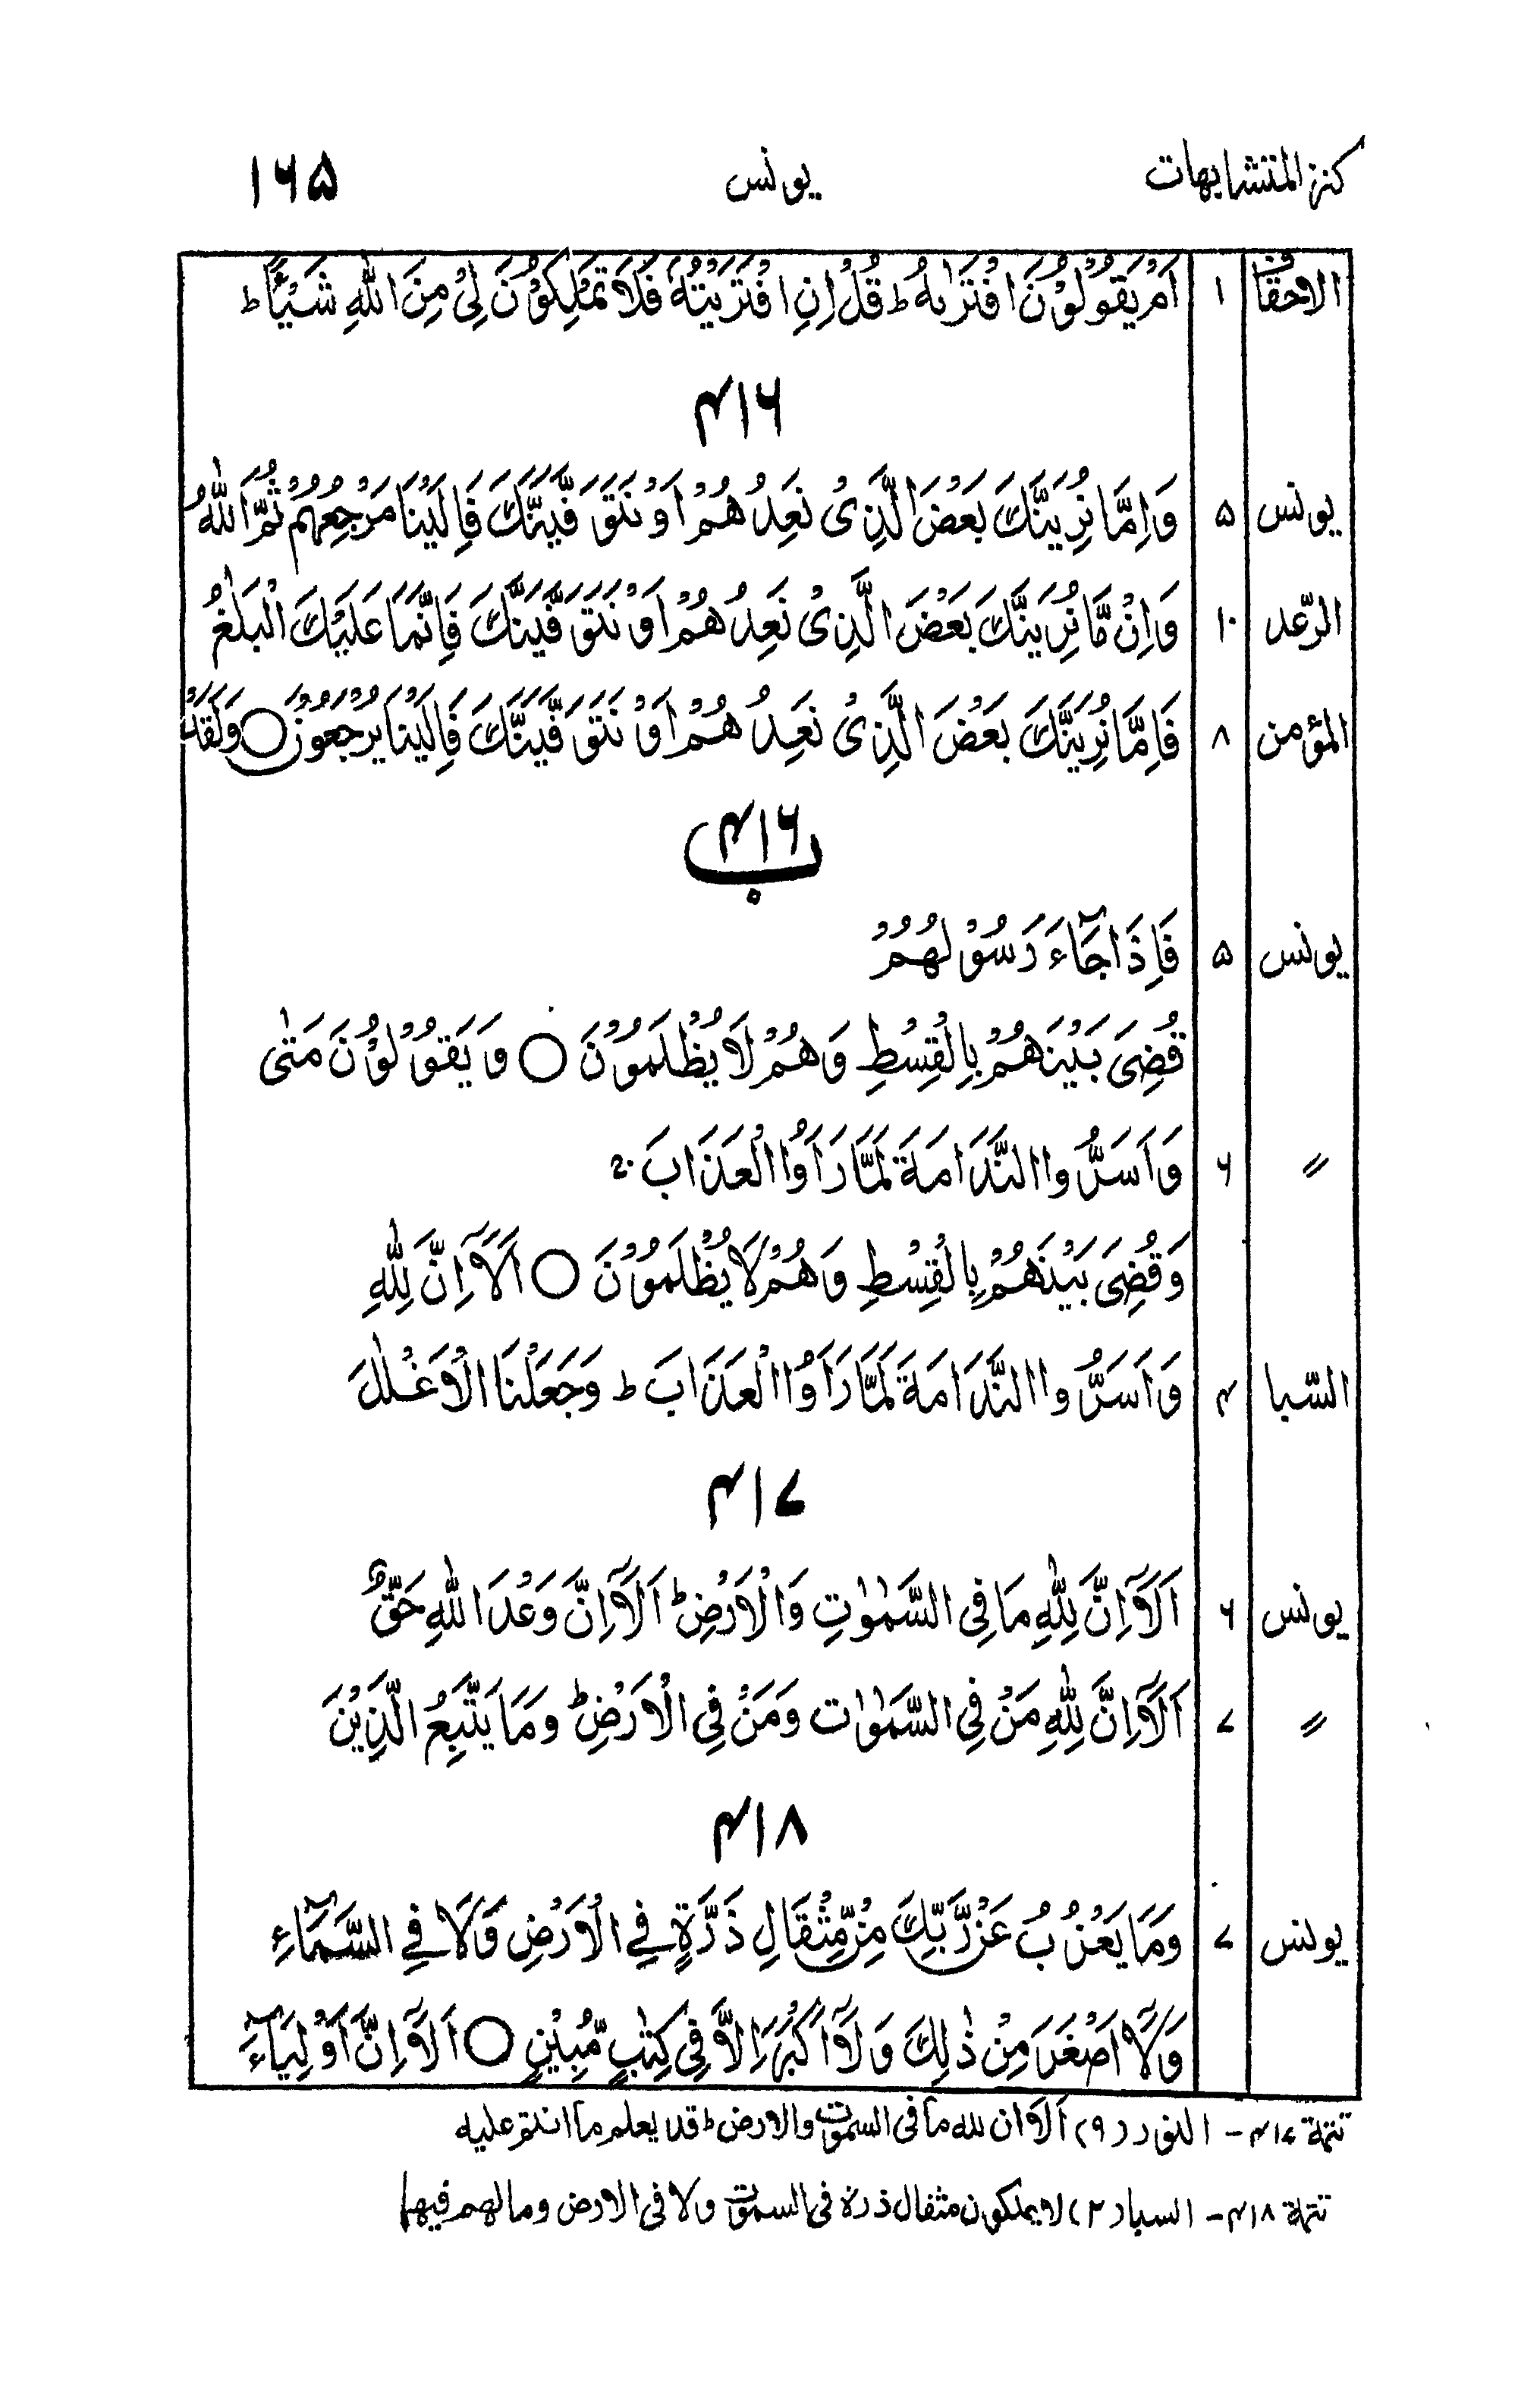 كنز المتشابهات يونس ۱۶۵
الاحقاف ۱ اَمْ يَقُوْلُوْنَ افْتَرٰىهُ ط قُلْ اِنِ افْتَرَيْتُهٗ فَلَا تَمْلِكُوْنَ لِيْ مِنَ اللّٰهِ شَيْـًٔا ط
۴۱۶
يونس ۵ وَاِمَّا نُرِيَنَّكَ بَعْضَ الَّذِيْ نَعِدُهُمْ اَوْ نَتَوَفَّيَنَّكَ فَاِلَيْنَا مَرْجِعُهُمْ ثُمَّ اللّٰهُ
الرّعد ۱۰ وَاِنْ مَّا نُرِيَنَّكَ بَعْضَ الَّذِيْ نَعِدُهُمْ اَوْ نَتَوَفَّيَنَّكَ فَاِنَّمَا عَلَيْكَ الْبَلٰغُ
المؤمن ۸ فَاِمَّا نُرِيَنَّكَ بَعْضَ الَّذِيْ نَعِدُهُمْ اَوْ نَتَوَفَّيَنَّكَ فَاِلَيْنَا يُرْجَعُوْنَ ○ وَلَقَدْ
۴۱۶ ب
يونس ۵ فَاِذَا جَآءَ رَسُوْلُهُمْ
قُضِيَ بَيْنَهُمْ بِالْقِسْطِ وَهُمْ لَا يُظْلَمُوْنَ ○ وَيَقُوْلُوْنَ مَتٰى
〃 ۶ وَاَسَرُّوا النَّدَامَةَ لَمَّا رَاَوُا الْعَذَابَ ج
وَقُضِيَ بَيْنَهُمْ بِالْقِسْطِ وَهُمْ لَا يُظْلَمُوْنَ ○ اَلَآ اِنَّ لِلّٰهِ
السّبا ۴ وَاَسَرُّوا النَّدَامَةَ لَمَّا رَاَوُا الْعَذَابَ ط وَجَعَلْنَا الْاَغْلٰلَ
۴۱۷
يونس ۶ اَلَآ اِنَّ لِلّٰهِ مَا فِي السَّمٰوٰتِ وَالْاَرْضِ ط اَلَآ اِنَّ وَعْدَ اللّٰهِ حَقٌّ
〃 ۷ اَلَآ اِنَّ لِلّٰهِ مَنْ فِي السَّمٰوٰت وَمَنْ فِي الْاَرْضِ ط وَمَا يَتَّبِعُ الَّذِيْنَ
۴۱۸
يونس ۷ وَمَا يَعْزُبُ عَنْ رَّبِّكَ مِنْ مِّثْقَالِ ذَرَّةٍ فِي الْاَرْضِ وَلَا فِي السَّمَآءِ
وَلَآ اَصْغَرَ مِنْ ذٰلِكَ وَلَآ اَكْبَرَ اِلَّا فِيْ كِتٰبٍ مُّبِيْنٍ ○ اَلَآ اِنَّ اَوْلِيَآءَ
تتمة ۴۱۷ - النور (۹) اَلَآ ان لله ما فى السموت والارض ط قد يعلم ما انتم عليه
تتمة ۴۱۸ - السبا (۲) لا يملكون مثقال ذرة فى السموت ولا فى الارض وما لهم فيهما